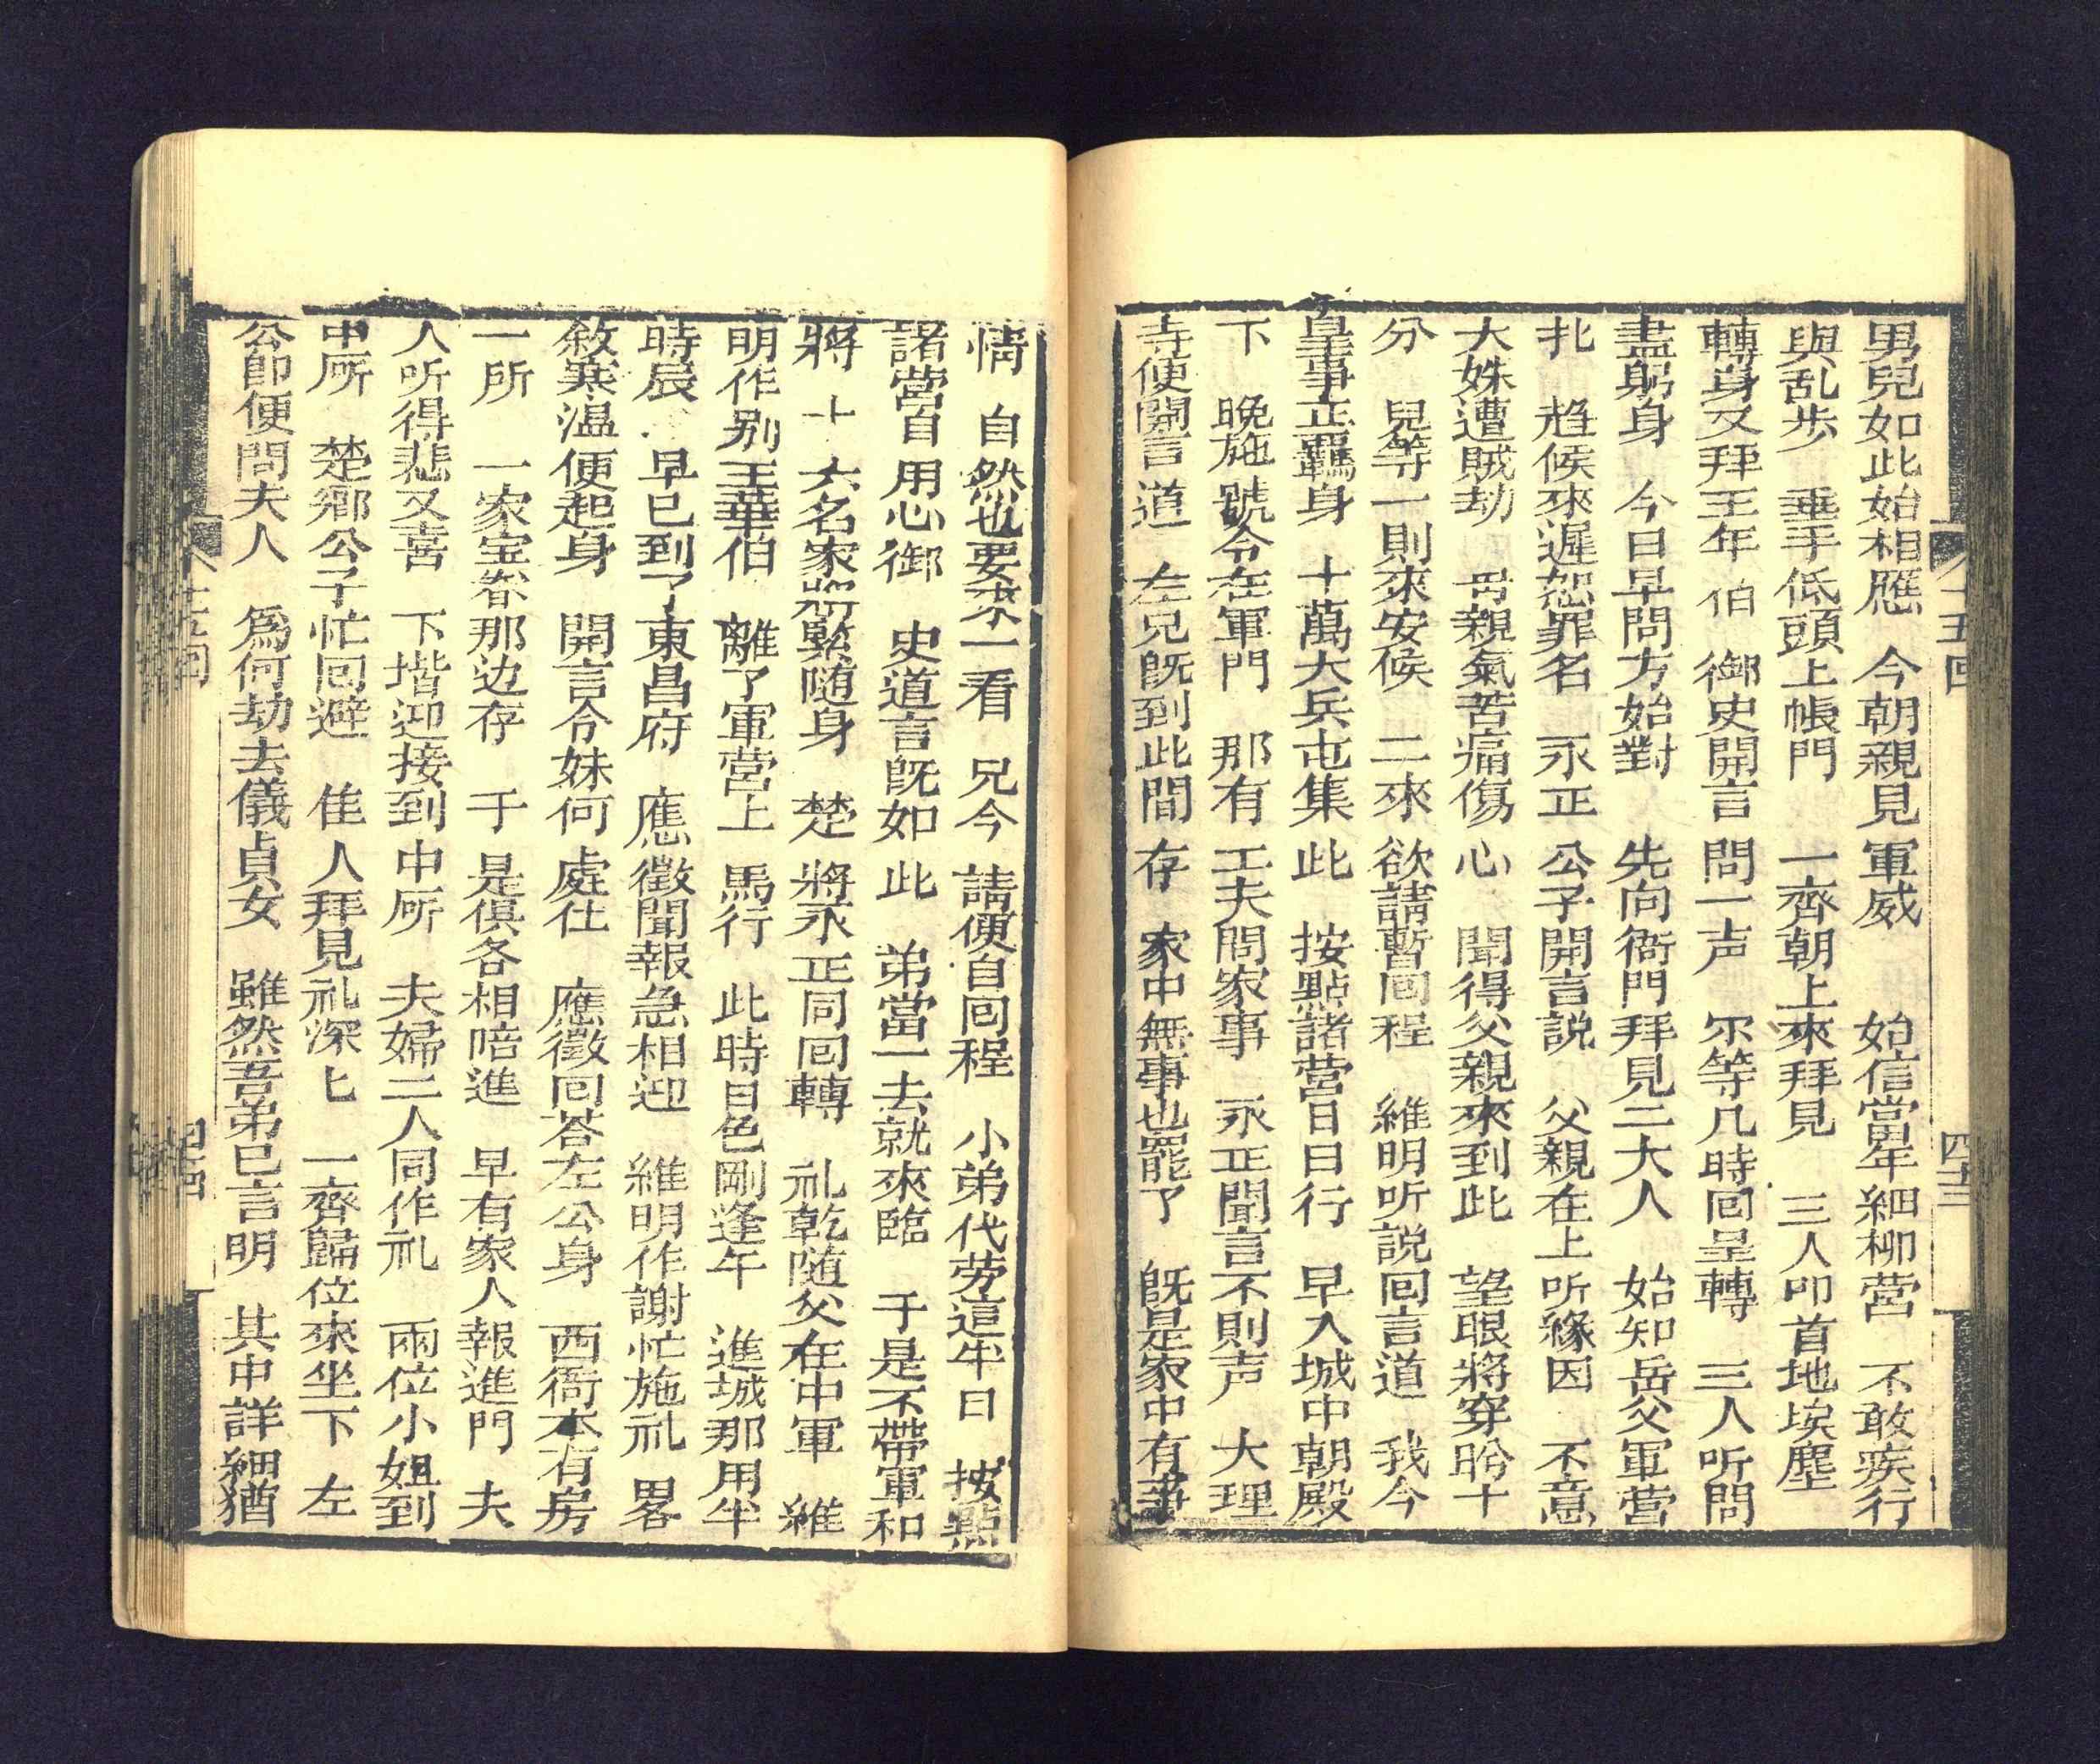 男兒如此始相應　今朝親見軍威　始信當年細柳營　不敢疾行
與乱步　垂手低頭上帳門　一齊朝上來拜見　三人叩首地埃塵
轉身又拜王年伯　御史開言問一声　尔等几時回呈轉　三人听問
盡躬身　今日早間方始對　先向衙門拜見二大人　始知岳父軍营
扎　趋候來遲恕罪名　永正公子開言説　父親在上听緣因　不意
大姝遭賊劫　毋親氣苦痛傷心　聞得父親來到此　望眼將穿盻十
分　兒等一則來安候　二來欲請暫囘程　維明听説囘言道　我今
皇事正羈身　十萬大兵屯集此　按點諸营日日行　早入城中朝殿
下　晚施號令在軍門　那有工夫問家事　永正聞言不則声　大理
寺便開言道　左兄旣到此間存　家中無事也罷了　旣是家中有事
十五回
四十三
情　自然也要來一看　兄今請便自囘程　小弟代劳這半日　按點
諸营自用心　御史道言旣如此　弟當一去就來臨　于是不帶軍和
將　十六名家將緊随身　楚將永正同囘轉　礼乾随父在中軍　維
明作别王華伯　離了軍营上馬行　此時日色剛逢午　進城那用半
時辰　早已到了東昌府　應徵聞報急相迎　維明作謝忙施礼　畧
敘寒温便起身　開言令妹何處住　應徵囘答左公身　西衙本有房
一所　一家宝眷那边存　于是俱各相陪進　早有家人報進門　夫
人听得悲又喜　下堦迎接到中所　夫婦二人同作礼　兩位小姐到
中所　楚鄉公子忙回避　佳人拜見礼深匕　一齊歸位來坐下　左
公即便問夫人　爲何劫去儀貞女　雖然吾弟已言明　其中詳細猶